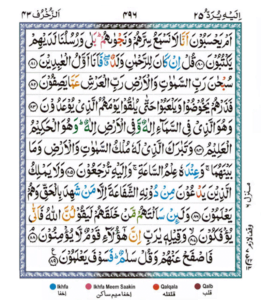 اِلَيْهِ يُرَدُّ ٢٥ ٤٩٦ اَلزُّخْرُف ٤٣
اَمْ يَحْسَبُوْنَ اَنَّا لَا نَسْمَعُ سِرَّهُمْ وَنَجْوٰىهُمْ ؕ بَلٰى وَرُسُلُنَا لَدَيْهِمْ
يَكْتُبُوْنَ ﴿۸۰﴾ قُلْ اِنْ كَانَ لِلرَّحْمٰنِ وَلَدٌ ۖ فَاَنَا اَوَّلُ الْعٰبِدِيْنَ ﴿۸۱﴾
سُبْحٰنَ رَبِّ السَّمٰوٰتِ وَالْاَرْضِ رَبِّ الْعَرْشِ عَمَّا يَصِفُوْنَ ﴿۸۲﴾
فَذَرْهُمْ يَخُوْضُوْا وَيَلْعَبُوْا حَتّٰى يُلٰقُوْا يَوْمَهُمُ الَّذِيْ يُوْعَدُوْنَ ﴿۸۳﴾
وَهُوَ الَّذِيْ فِي السَّمَآءِ اِلٰهٌ وَّفِي الْاَرْضِ اِلٰهٌ ؕ وَهُوَ الْحَكِيْمُ
الْعَلِيْمُ ﴿۸۴﴾ وَتَبٰرَكَ الَّذِيْ لَهٗ مُلْكُ السَّمٰوٰتِ وَالْاَرْضِ وَمَا
بَيْنَهُمَا ۚ وَعِنْدَهٗ عِلْمُ السَّاعَةِ ۚ وَاِلَيْهِ تُرْجَعُوْنَ ﴿۸۵﴾ وَلَا يَمْلِكُ
الَّذِيْنَ يَدْعُوْنَ مِنْ دُوْنِهِ الشَّفَاعَةَ اِلَّا مَنْ شَهِدَ بِالْحَقِّ وَهُمْ
يَعْلَمُوْنَ ﴿۸۶﴾ وَلَئِنْ سَاَلْتَهُمْ مَّنْ خَلَقَهُمْ لَيَقُوْلُنَّ اللّٰهُ فَاَنّٰى
يُؤْفَكُوْنَ ﴿۸۷﴾ وَقِيْلِهٖ يٰرَبِّ اِنَّ هٰٓؤُلَآءِ قَوْمٌ لَّا يُؤْمِنُوْنَ ﴿۸۸﴾
فَاصْفَحْ عَنْهُمْ وَقُلْ سَلٰمٌ ؕ فَسَوْفَ يَعْلَمُوْنَ ﴿۸۹﴾
Ikhfa Ikhfa Meem Saakin Qalqala Qalb
اخفا اخفا میم ساکن قلقلہ قلب